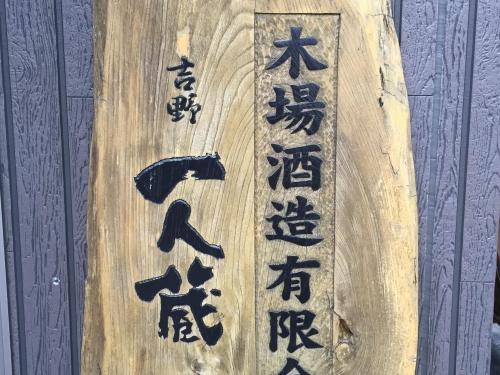 木場酒造有限会
吉野
一人蔵